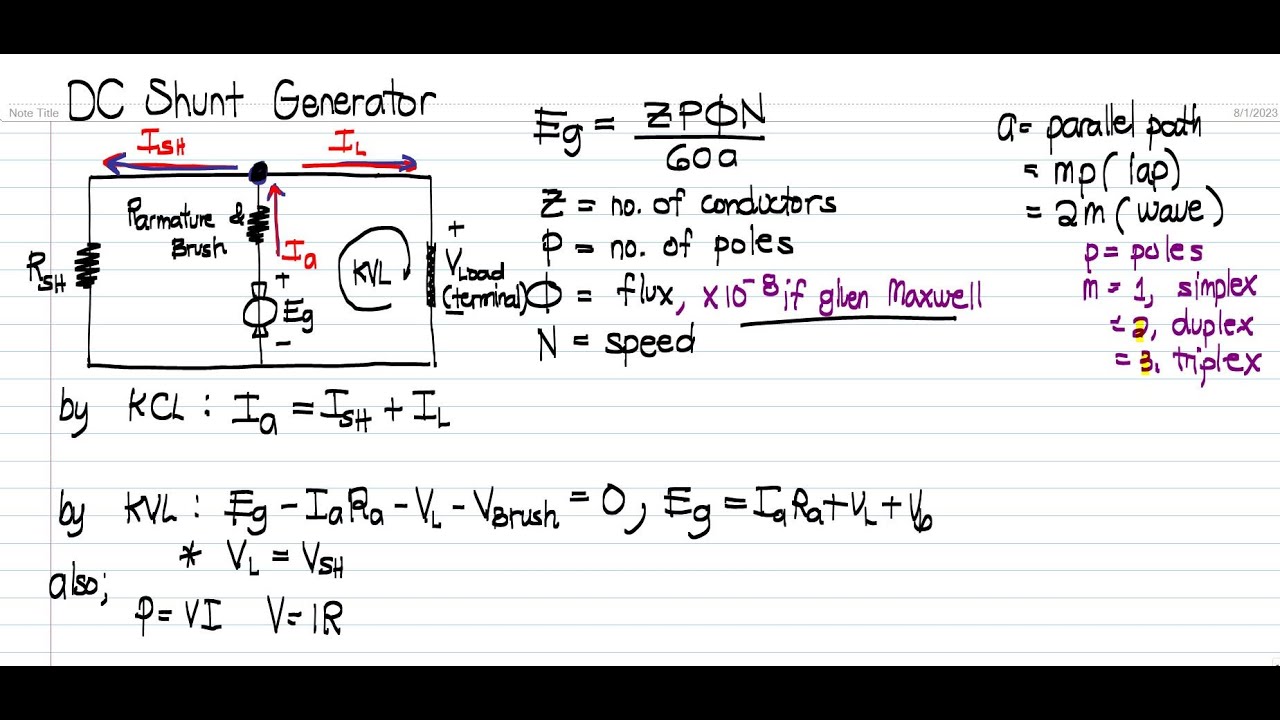 Note Title
8/1/2023
DC Shunt Generator
I_SH
I_L
R_armature &
Brush
I_a
R_SH
KVL
+
V_Load
(terminal)
-
+
Eg
-
Eg = ZPΦN / 60a
Z = no. of conductors
P = no. of poles
Φ = flux, x10^-8 if given Maxwell
N = speed
a = parallel path
= mp (lap)
= 2m (wave)
p = poles
m = 1, simplex
= 2, duplex
= 3, triplex
by KCL : I_a = I_SH + I_L
by KVL : Eg - I_aR_a - V_L - V_Brush = 0, Eg = I_aR_a + V_L + V_b
* V_L = V_SH
also;
P = VI V = IR